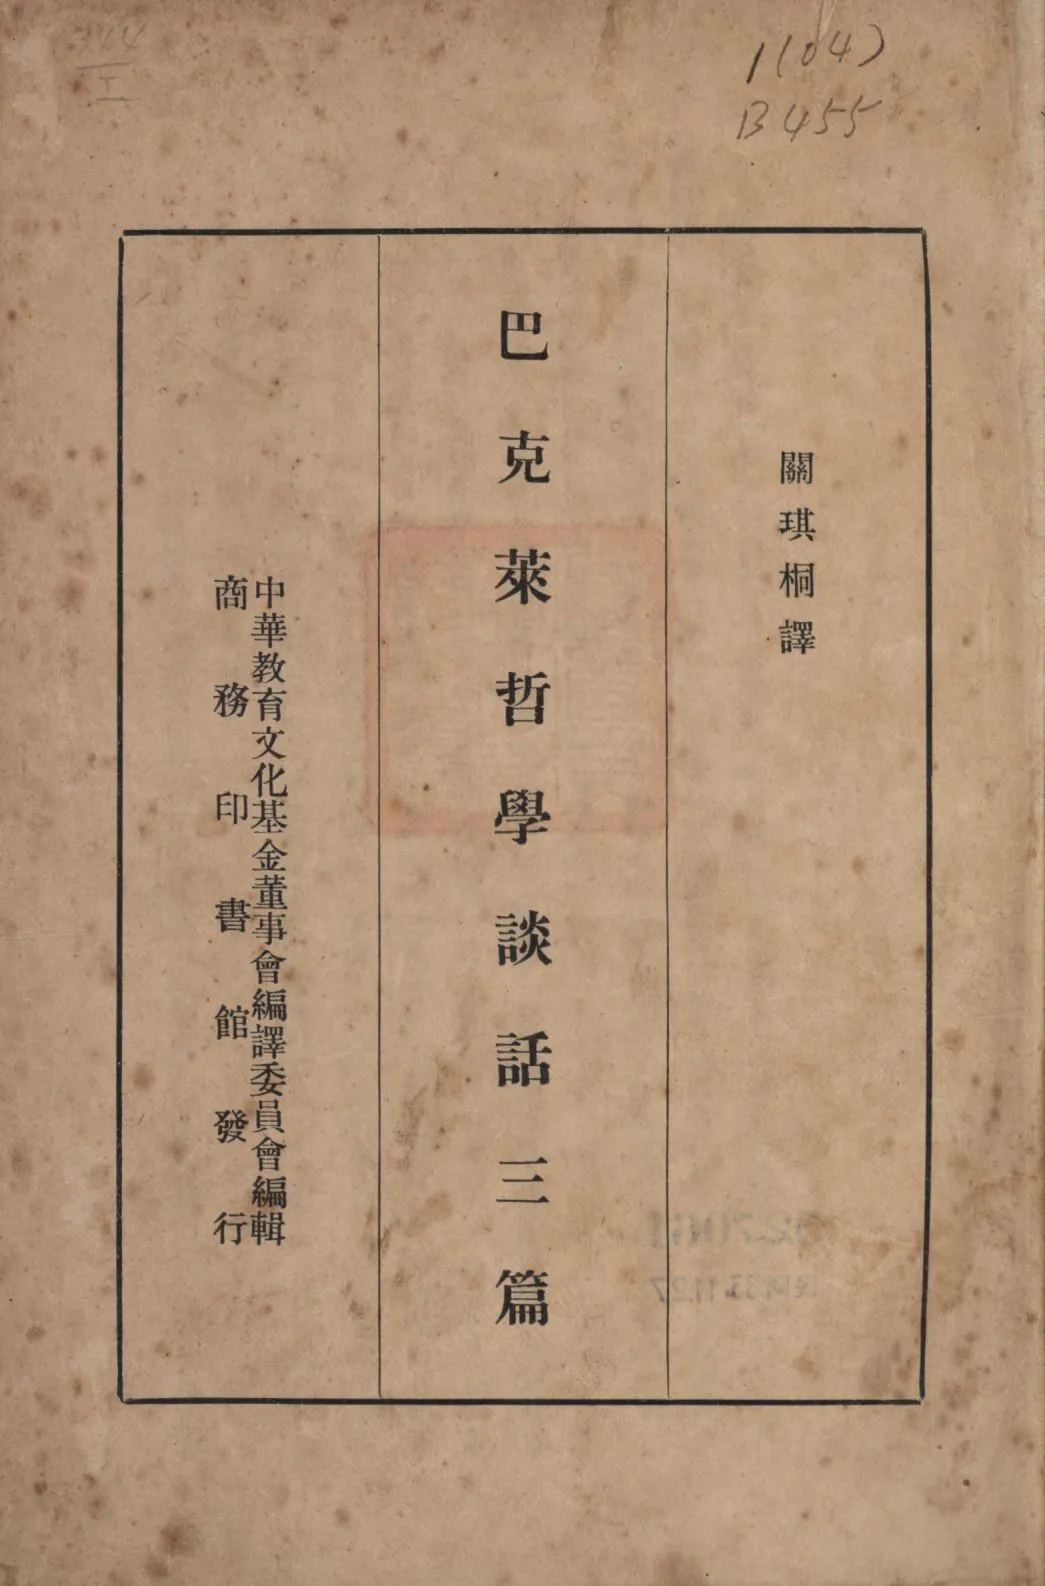 1(04)
B455
關琪桐譯
巴克萊哲學談話三篇
中華教育文化基金董事會編譯委員會編輯
商務印書館發行